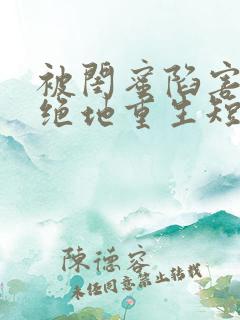 被閨蜜陷害
绝地重生短
陳德容
未经同意禁止转载